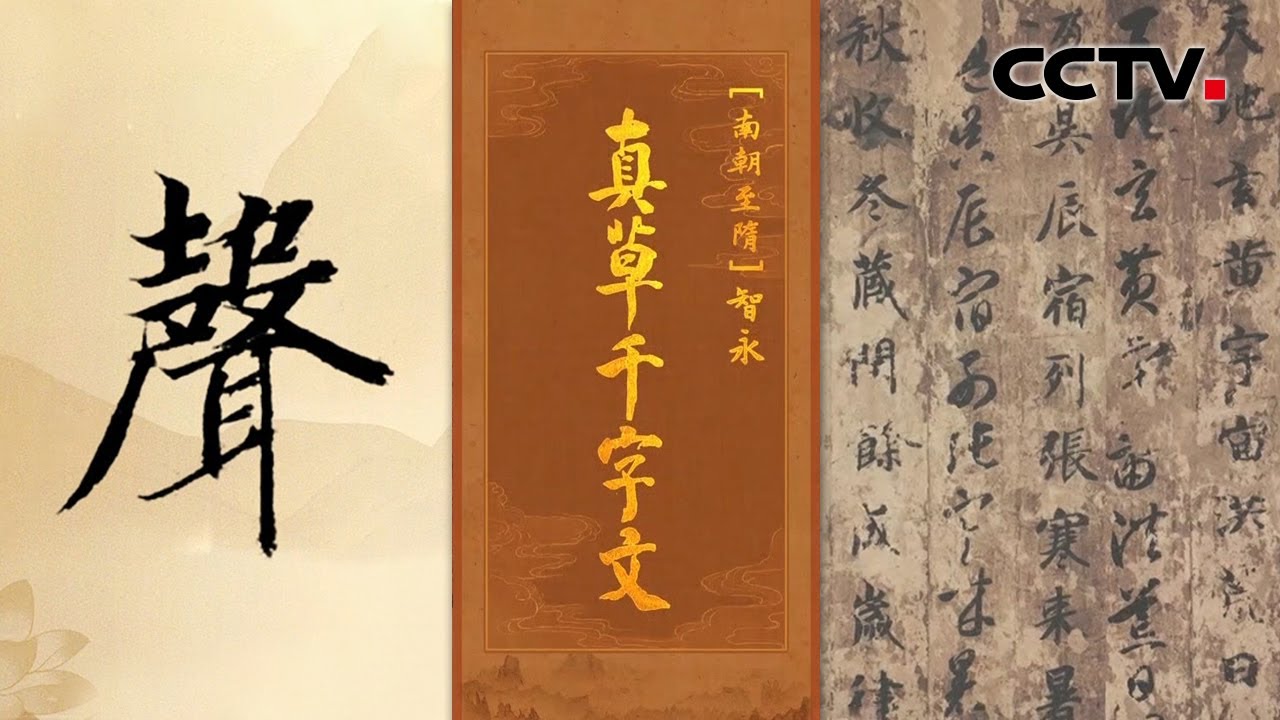 聲
[南朝至隋]智永
真草千字文
CCTV.
天地玄黄宇宙洪荒日
天地玄黄宇宙洪荒日
盈昃辰宿列張寒来暑
盈昃辰宿列張寒来暑
秋收冬藏閏餘成歲律